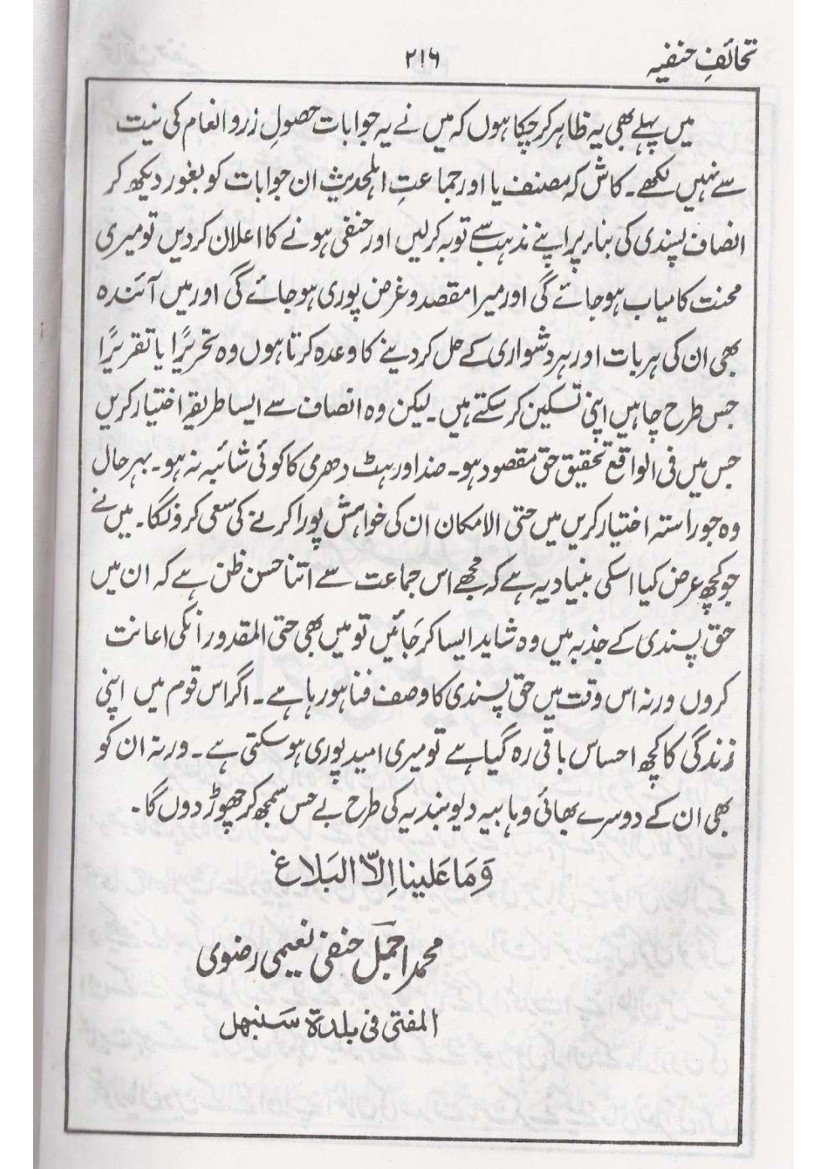 تحائفِ حنفیہ
۲۱۶
میں پہلے بھی یہ ظاہر کر چکا ہوں کہ میں نے یہ جوابات حصولِ زر و انعام کی نیت
سے نہیں لکھے۔ کاش کہ مصنف یا اور جماعتِ اہلحدیث ان جوابات کو بغور دیکھ کر
انصاف پسندی کی بناء پر اپنے مذہب سے توبہ کرلیں اور حنفی ہونے کا اعلان کردیں تو میری
محنت کامیاب ہو جائے گی اور میرا مقصد و غرض پوری ہو جائے گی اور میں آئندہ
بھی ان کی ہر بات اور ہر دشواری کے حل کر دینے کا وعدہ کرتا ہوں وہ تحریرًا یا تقریرًا
جس طرح چاہیں اپنی تسکین کر سکتے ہیں۔ لیکن وہ انصاف سے ایسا طریقہ اختیار کریں
جس میں فی الواقع تحقیق حق مقصود ہو۔ ضد اور ہٹ دھرمی کا کوئی شائبہ نہ ہو۔ بہر حال
وہ جو راستہ اختیار کریں میں حتی الامکان ان کی خواہش پورا کرنے کی سعی کرونگا۔ میں نے
جو کچھ عرض کیا اسکی بنیاد یہ ہے کہ مجھے اس جماعت سے اتنا حسن ظن ہے کہ ان میں
حق پسندی کے جذبہ میں وہ شاید ایسا کر جائیں تو میں بھی حتی المقدور انکی اعانت
کروں ورنہ اس وقت میں حق پسندی کا وصف فنا ہو رہا ہے۔ اگر اس قوم میں اپنی
زندگی کا کچھ احساس باقی رہ گیا ہے تو میری امید پوری ہو سکتی ہے۔ ورنہ ان کو
بھی ان کے دوسرے بھائی وہابیہ دیوبندیہ کی طرح بے حس سمجھ کر چھوڑ دوں گا۔
وَمَا عَلینا اِلاّ البَلاغ
محمد اجمل حنفی نعیمی رضوی
المفتی فی بلدۃ سَنبھل